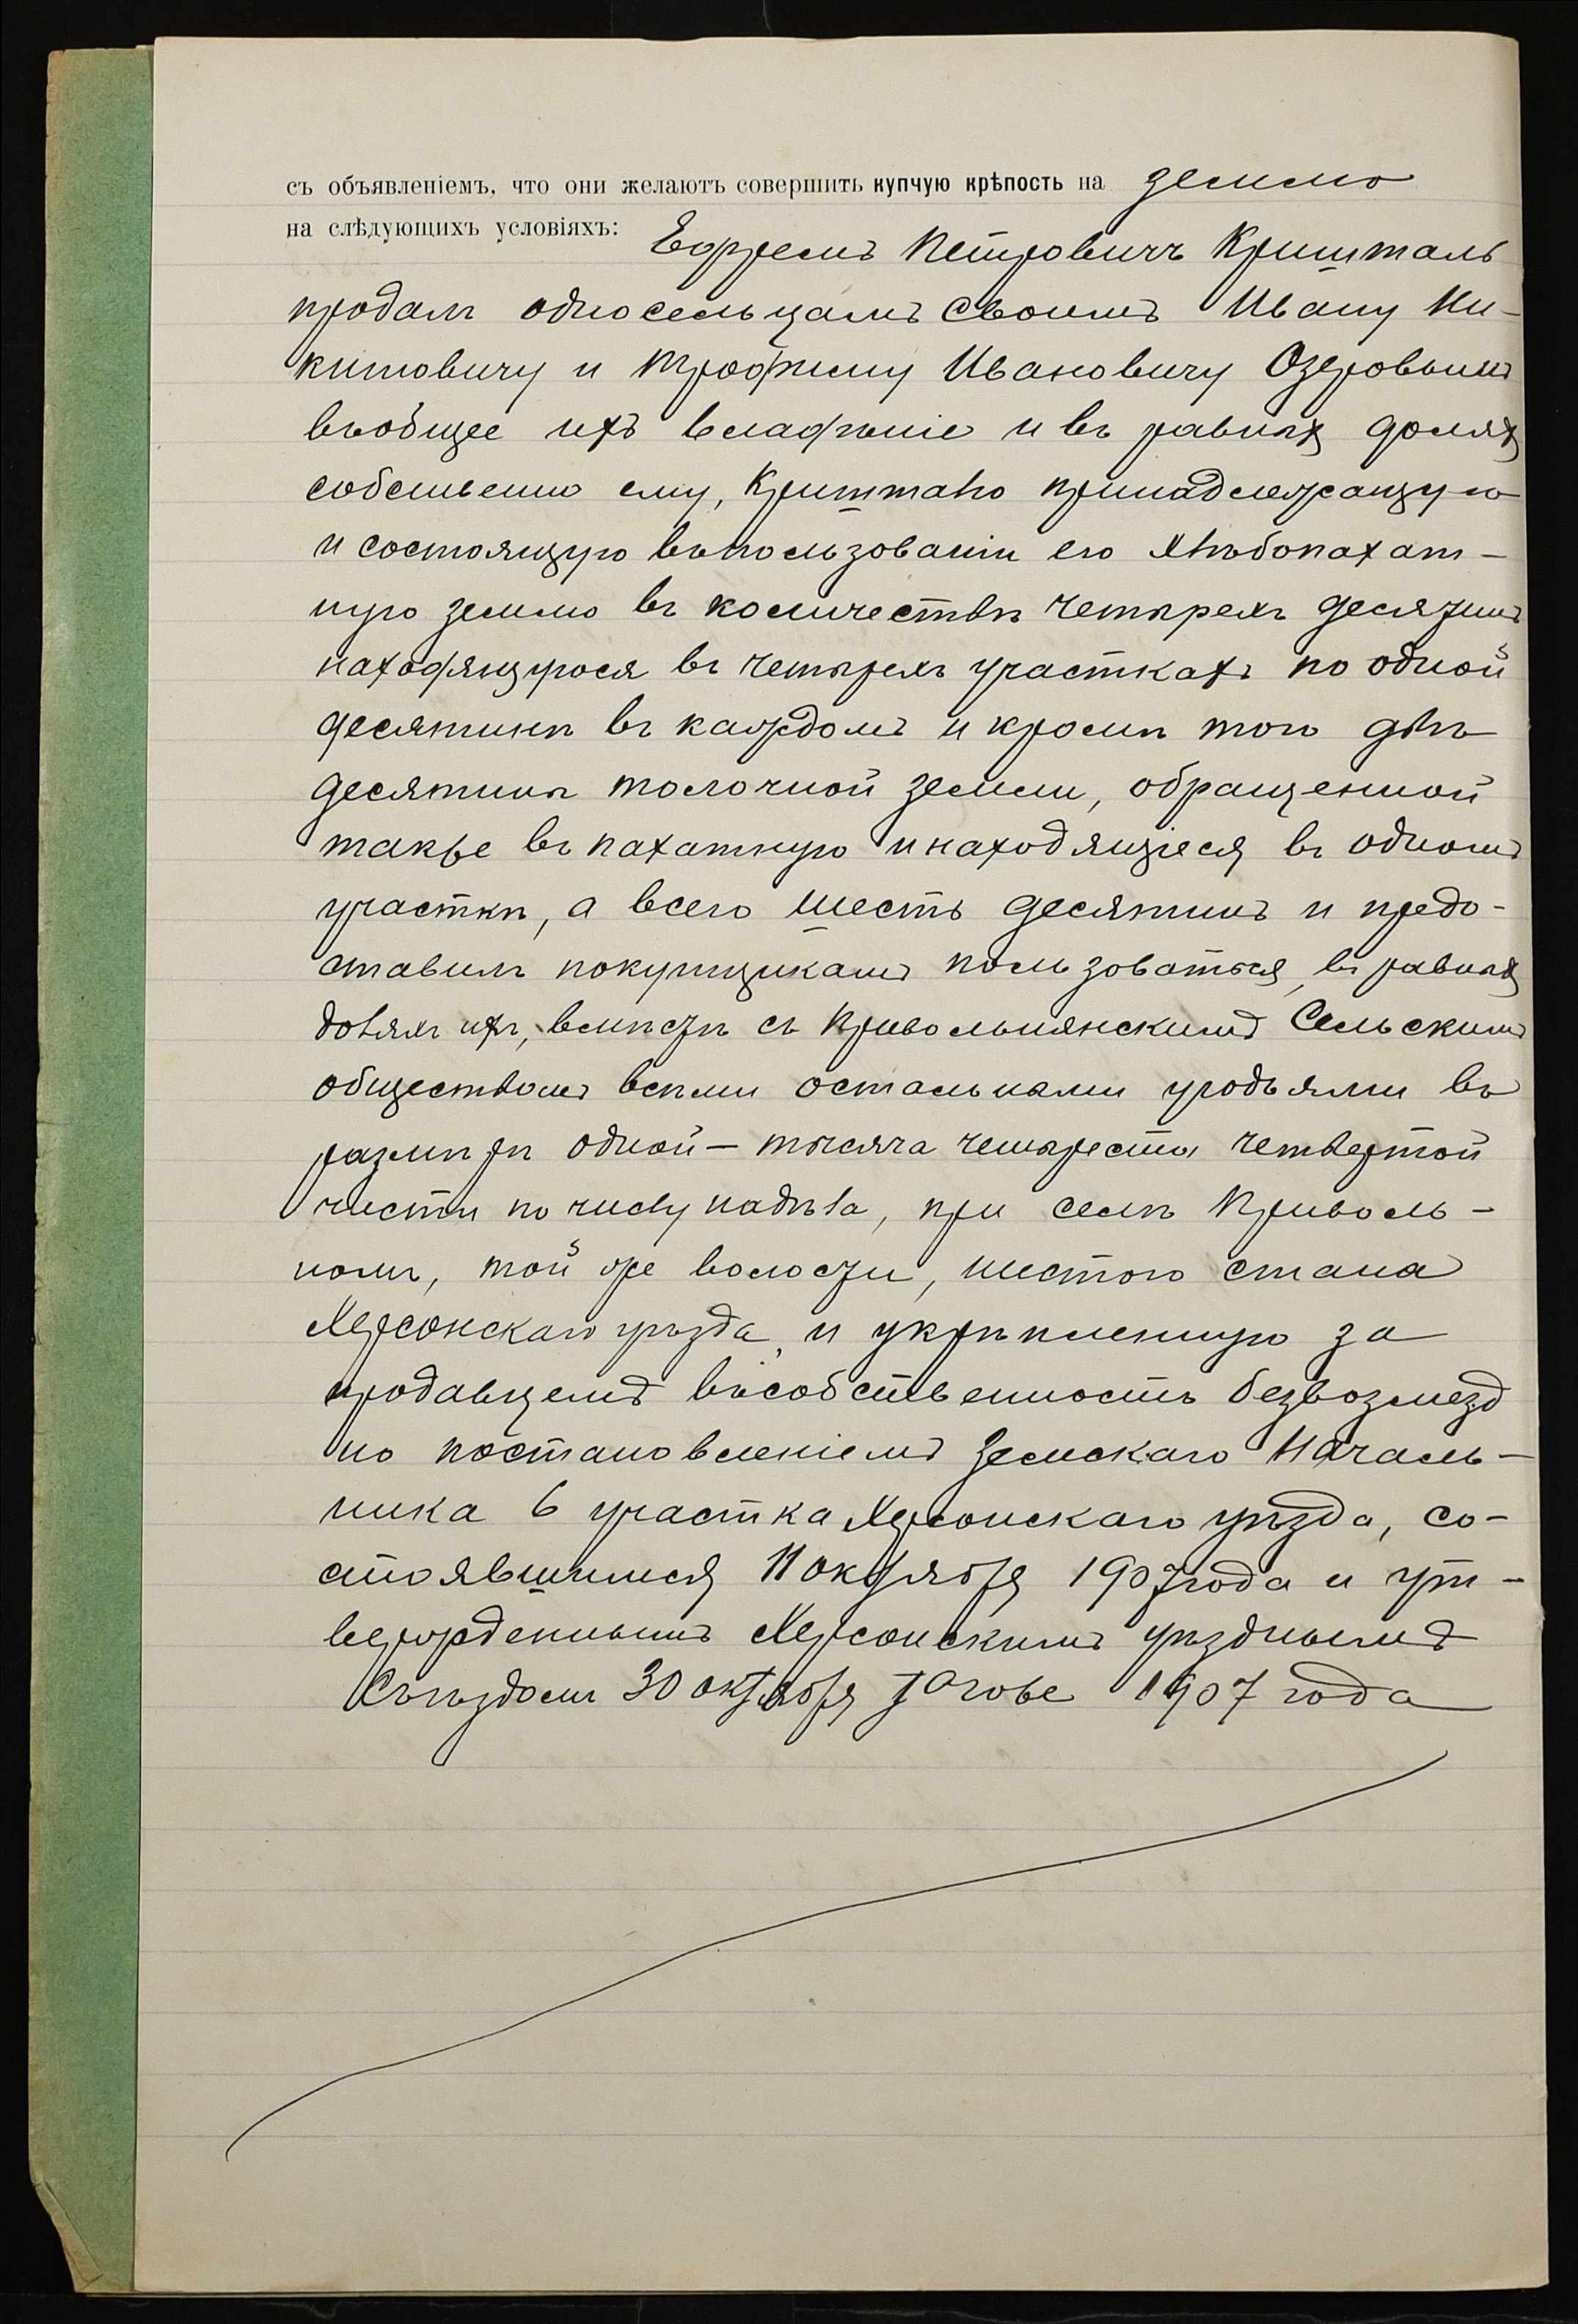 съ объявленіемъ, что они желаютъ совершить купчую крѣпость на землю
на слѣдующихъ условіяхъ: Ефремъ Петровичъ Кришталь
продалъ односельцамъ своимъ Ивану Ни-
китовичу и Трофиму Ивановичу Озеровымъ
въ общее ихъ владѣніе и въ равныхъ доляхъ
собственно ему, Кришталю принадлежащую
и состоящую въ пользованіи его хлѣбопахат-
ную землю въ количествѣ четырехъ десятинъ
находящуюся въ четырехъ участкахъ по одной
десятинѣ въ каждомъ и кромѣ того двѣ
десятины толочной земли, обращенной
также въ пахатную и находящіеся въ одномъ
участкѣ, а всего шесть десятинъ и предо-
ставилъ покупщикамъ пользоваться, въ равныхъ
доляхъ ихъ, вмѣстѣ съ Привольнянскимъ Сельскимъ
обществомъ всѣми остальными угодьями въ
размѣрѣ одной – тысяча четыреста четвертой
части по числу надѣла, при селѣ Приволь-
номъ, той же волости, шестого стана
Херсонскаго уѣзда, и укрѣпленную за
продавцемъ въ собственность безвозмезд
но постановленіемъ Земскаго Началь-
ника 6 участка Херсонскаго уѣзда, со-
стоявшимся 11 октября 1907 года и ут-
вержденнымъ Херсонскимъ уѣзднымъ
Съѣздомъ 30 октября того же 1907 года